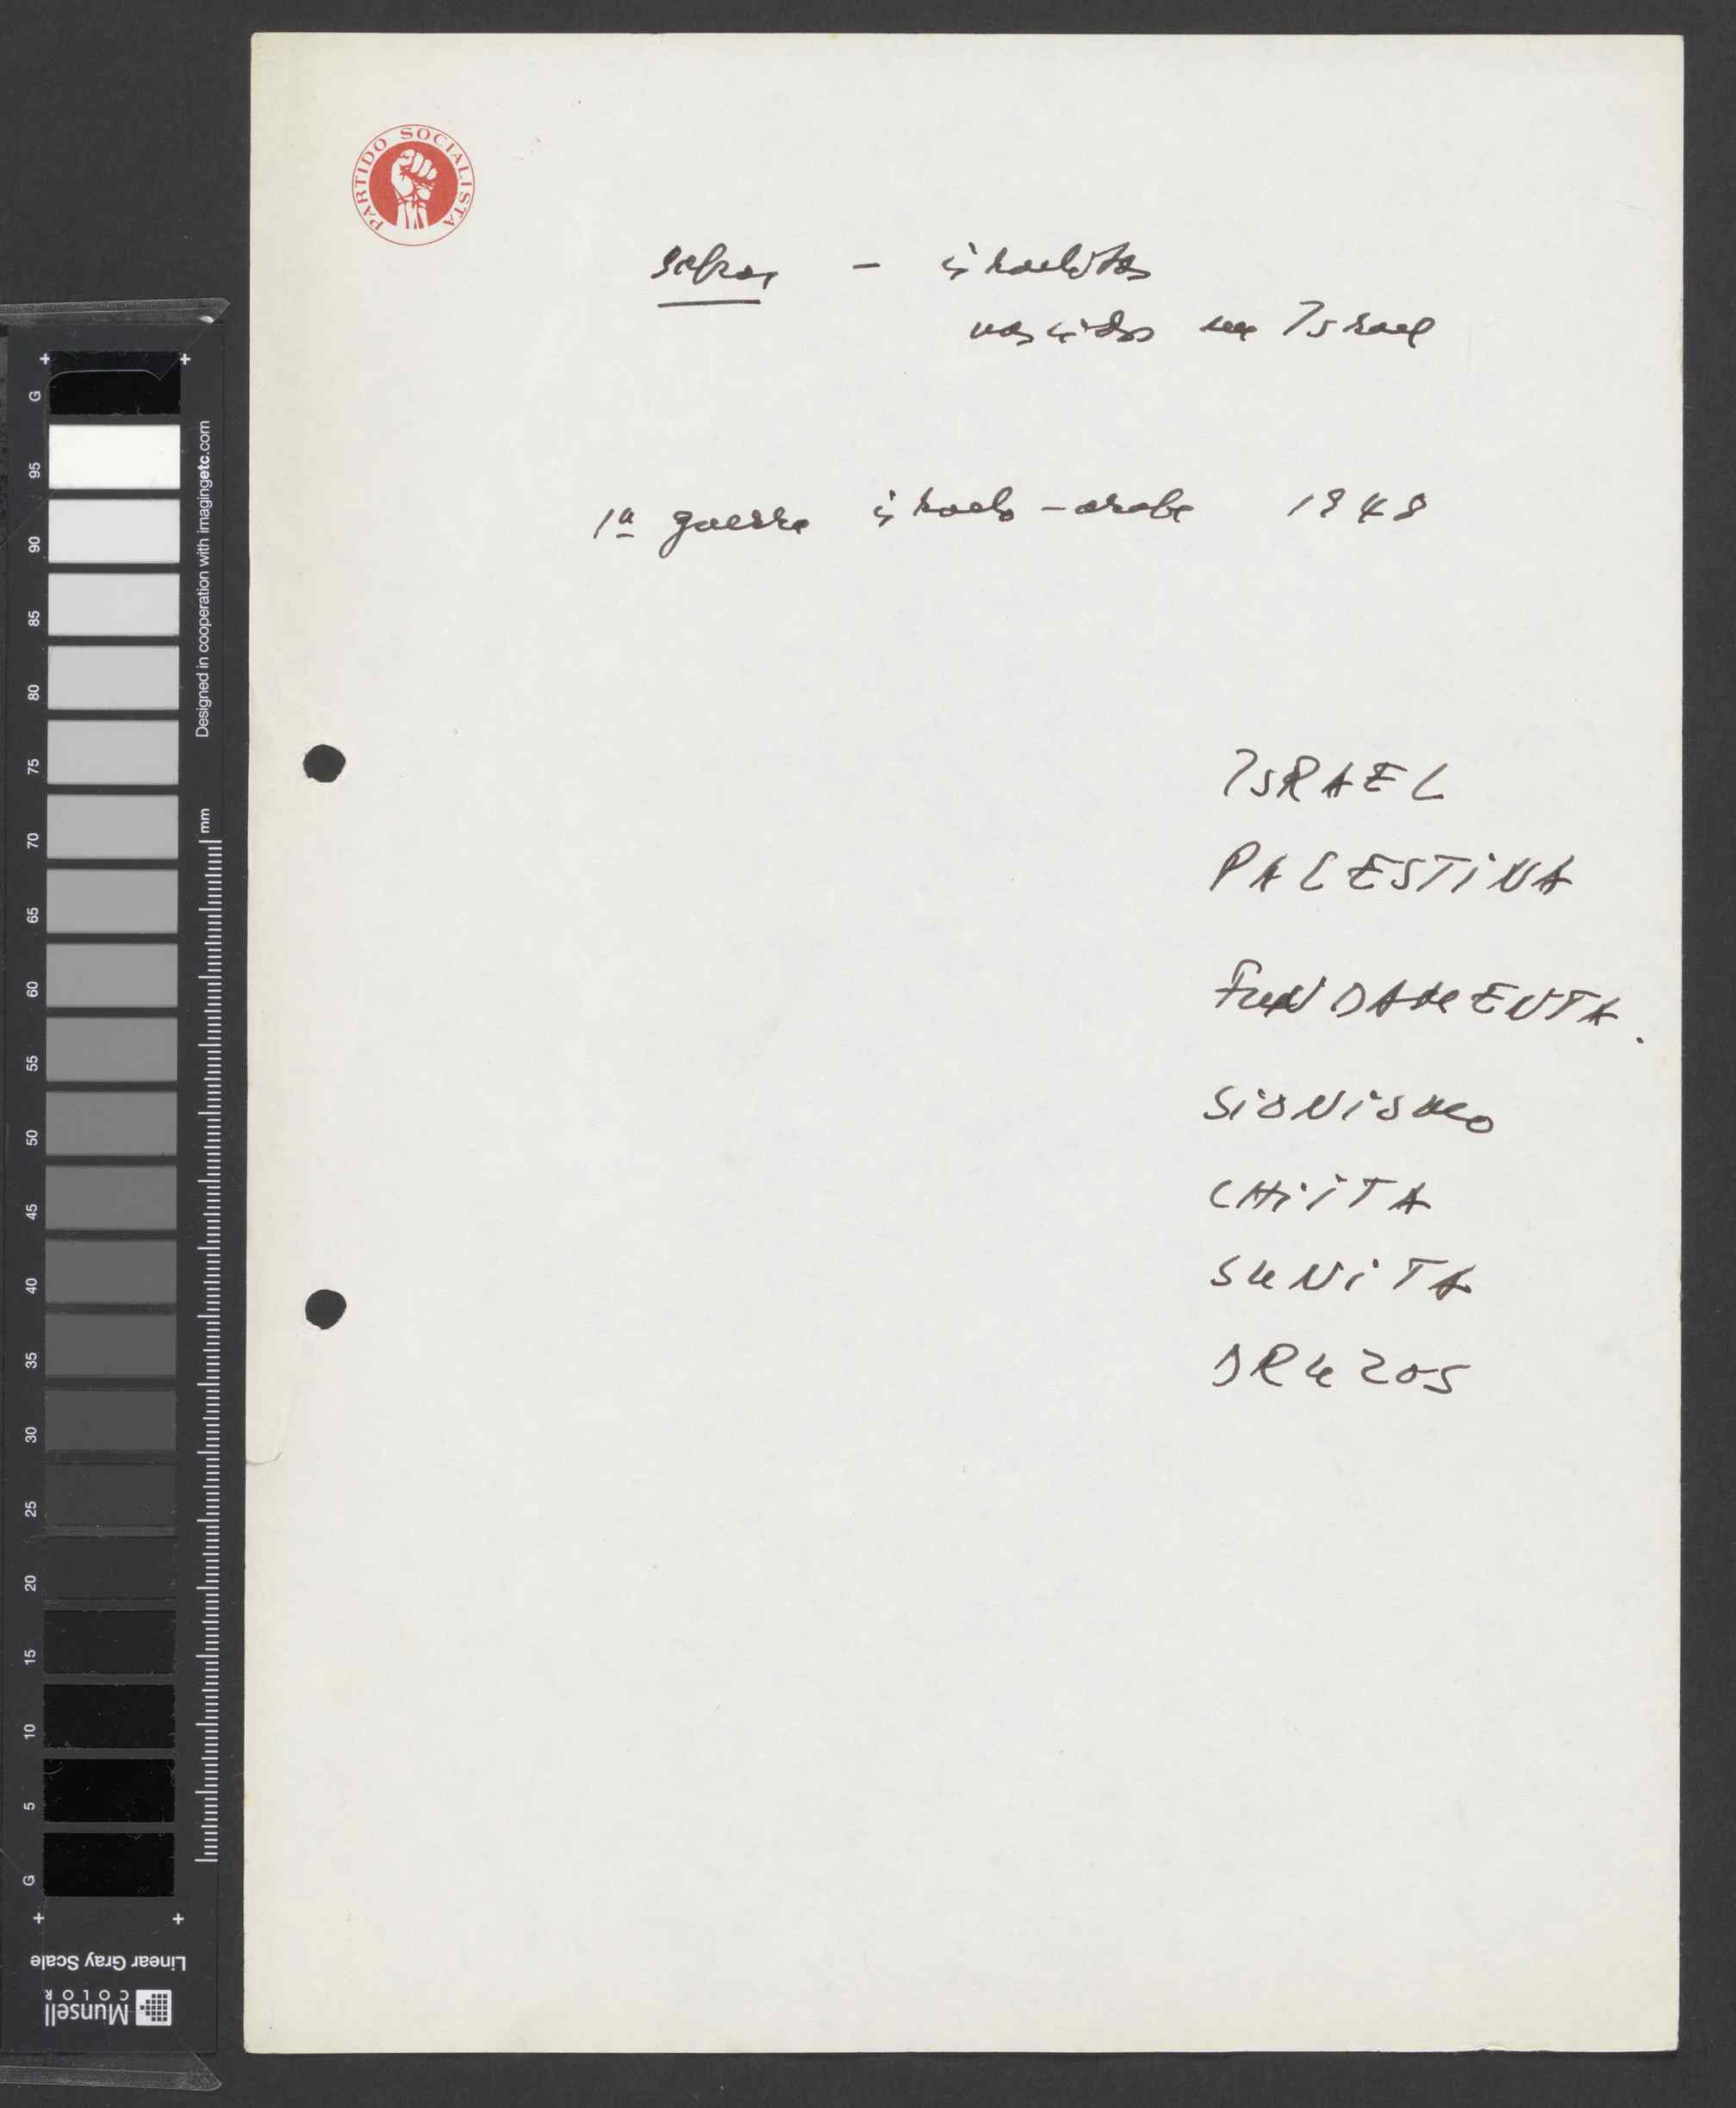 PARTIDO SOCIALISTA
sabras – israelitas
nascidos em Israel
1ª guerra israelo-arabe 1948
ISRAEL
PALESTINA
FUNDAMENTA.
SIONISMO
CHIITA
SUNITA
DRUZOS
Designed in cooperation with imagingetc.com
mm
G
95
90
85
80
75
70
65
60
55
50
45
40
35
30
25
20
15
10
5
G
Linear Gray Scale
Munsell
COLOR